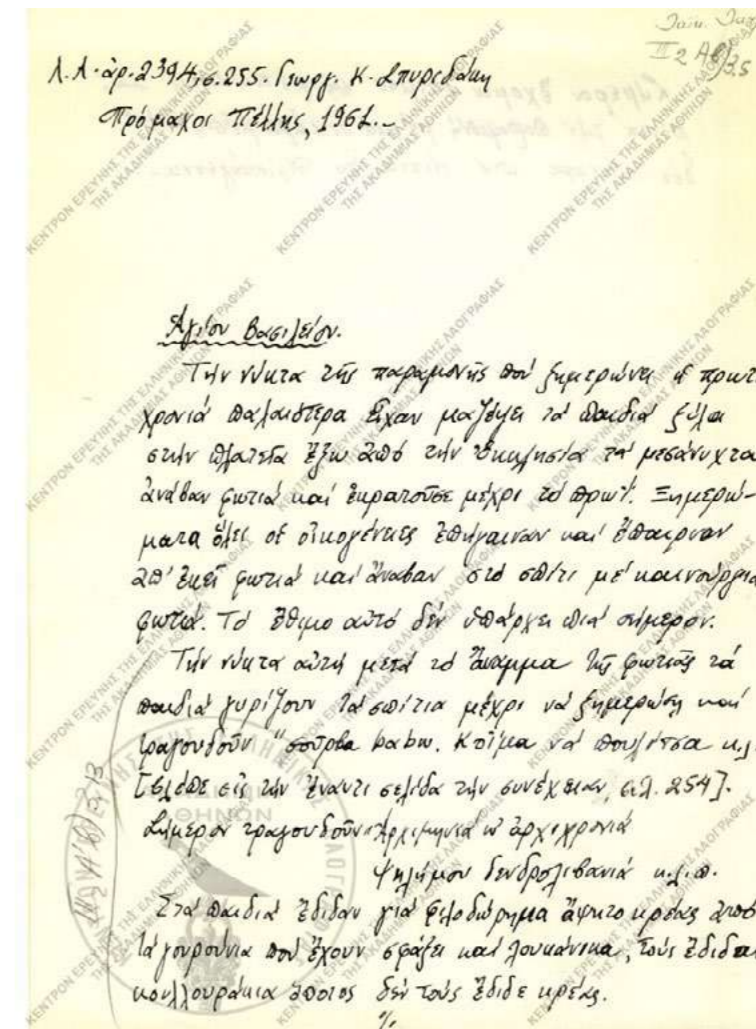 Λ.Α. ἀρ. 2394, σ. 255. Γεωργ. Κ. Σπυριδάκη
Πρόμαχοι Πέλλης, 1961.-
ΙΙ 2 Α β) 35
Ἁγίου Βασιλείου.
Τὴν νύκτα τῆς παραμονῆς ποὺ ξημερώνει ἡ πρωτ
χρονιὰ παλαιότερα εἶχαν μαζέψει τὰ παιδιὰ ξύλα
στὴν πλατεῖα ἔξω ἀπὸ τὴν ἐκκλησία τὰ μεσάνυχτα
ἀνάβαν φωτιὰ καὶ ἐκρατοῦσε μέχρι τὸ πρωΐ. Ξημερώ-
ματα ὅλες οἱ οἰκογένειες ἐπήγαιναν καὶ ἔπαιρναν
ἀπ' ἐκεῖ φωτιὰ καὶ ἄναβαν στὸ σπίτι μὲ καινούργια
φωτιά. Τὸ ἔθιμο αὐτὸ δὲν ὑπάρχει πιὰ σήμερον.
Τὴν νύκτα αὐτὴ μετὰ τὸ ἄναμμα τῆς φωτιᾶς τὰ
παιδιὰ γυρίζουν τὰ σπίτια μέχρι νὰ ξημερώση καὶ
τραγουδοῦν "σούρβα babw. Κόλιμα νὰ πουλίτσα κ.λ.
[βλέπε εἰς τὴν ἔναντι σελίδα τὴν συνέχειαν, σελ. 254].
Σήμερον τραγουδοῦν: Ἀρχιμηνιὰ κι ἀρχιχρονιὰ
ψηλή μου δενδρολιβανιὰ κ.λ.π.
Στὰ παιδιὰ ἔδιδαν γιὰ φιλοδώρημα ἄψητο κρέας ἀπὸ
τὰ γουρούνια ποὺ ἔχουν σφάξει καὶ λουκάνικα, τοὺς ἔδιδαν
κουλλουράκια ὅποιος δὲν τοὺς ἔδιδε κρέας.
%
ΚΕΝΤΡΟΝ ΕΡΕΥΝΗΣ ΤΗΣ ΕΛΛΗΝΙΚΗΣ ΛΑΟΓΡΑΦΙΑΣ
ΤΗΣ ΑΚΑΔΗΜΙΑΣ ΑΘΗΝΩΝ